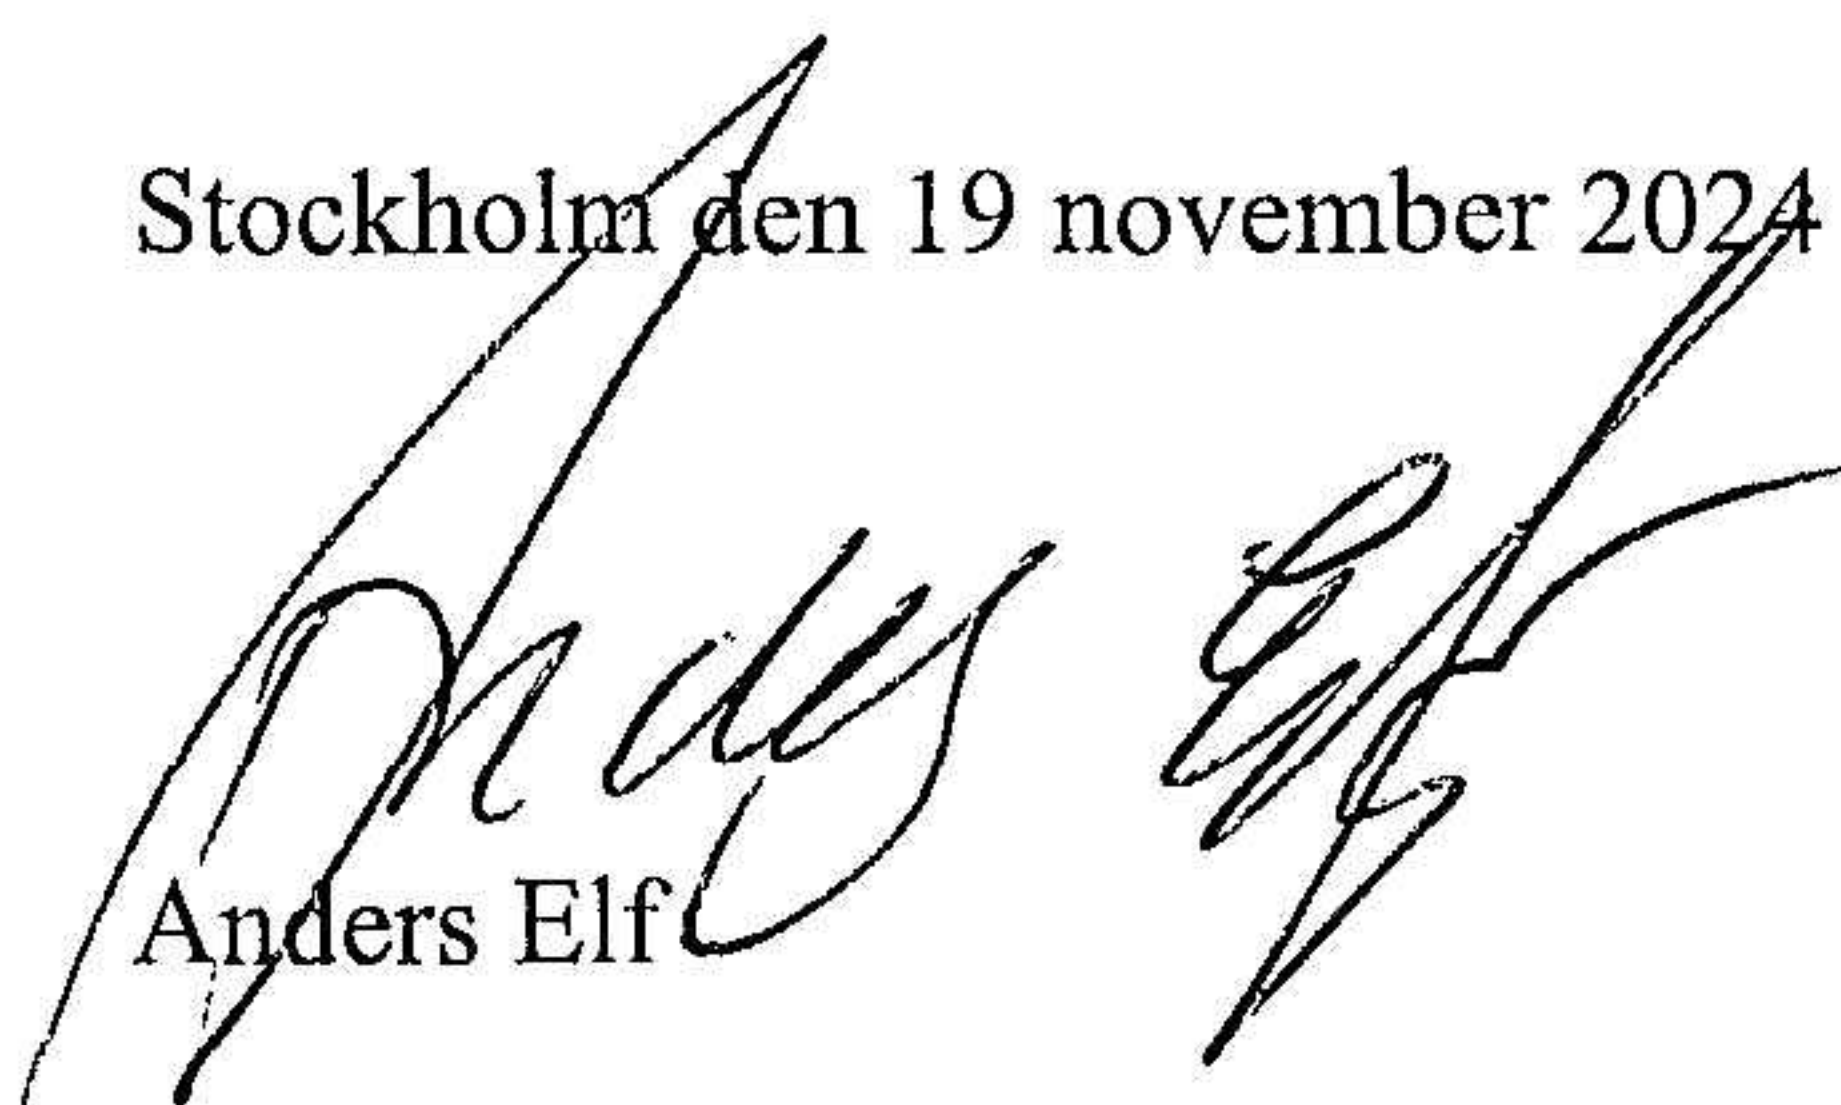 Stockholm den 19 november 2024
Anders Elf
Anders Elf